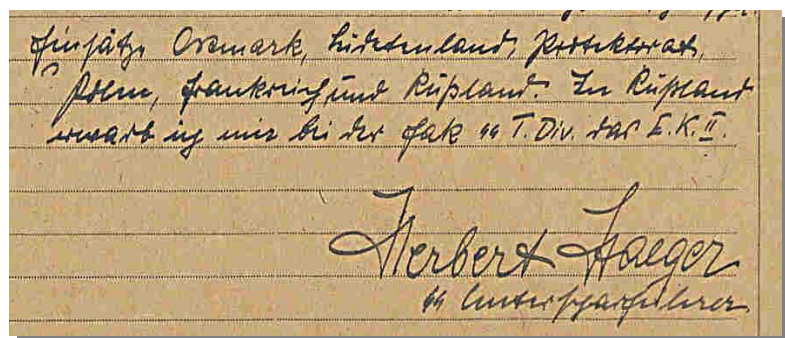 Einsätze Ostmark, Sudetenland, Protektorat,
Polen, Frankreich und Rußland. In Rußland
erwarb ich mir bei der Flak ᛋᛋ T. Div. das E.K. II.
Herbert Haeger
ᛋᛋ Unterscharführer.